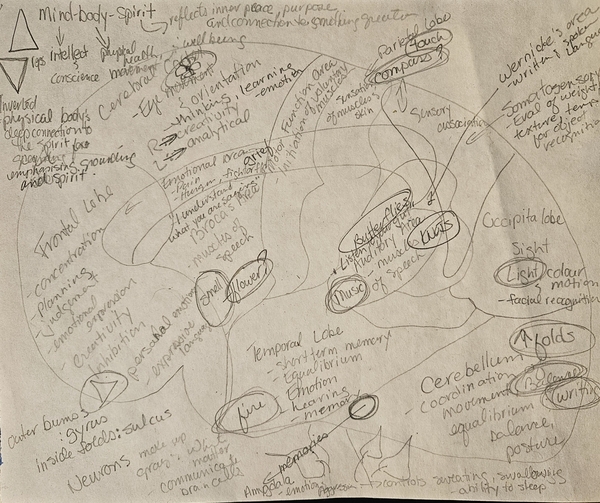 Mind-body-Spirit
reflects inner peace, purpose
and connection to something greater
intellect
physical
health
well being
conscience
movement
Inverted
physical body's
deep connection to
the Spirit
emphasising grounding
and spirit
Cerebral
- Eye movement
- orientation
- thinking
- learning
- emotion
- creativity
- analytical
Motor Function area
initiation of voluntary
muscles
sensations
of muscles
skin
Parietal lobe
touch
compass?
Sensory
association
Wernicke's area
- written & spoken
language
Somatosensory
Eval of weight,
texture, temp
for object
recognition
Emotional area
- Pain
- Hunger,
"I understand
what you are saying"
Broca's Area
- muscles of
speech
Frontal Lobe
- concentration
- planning
- judgement
- emotional
expression
- creativity
- inhibition
personal emotion
- expressive
language
Butterflies
Auditory Area
- muscles
of speech
Music
Occipital lobe
Sight
Light
colour
& motion
- facial recognition
smell
flower
Temporal Lobe
- short term memory
- Equilibrium
- Emotion
- hearing
- memory
fire
folds
Cerebellum
- coordination
movement
equilibrium
balance,
posture
Balance
outer bumps
gyrus
inside folds: sulcus
Neurons
make up
gray
matter
communicate
brain cells
memories
Amygdala
- emotion
controls sweating, swallowing
ability to sleep